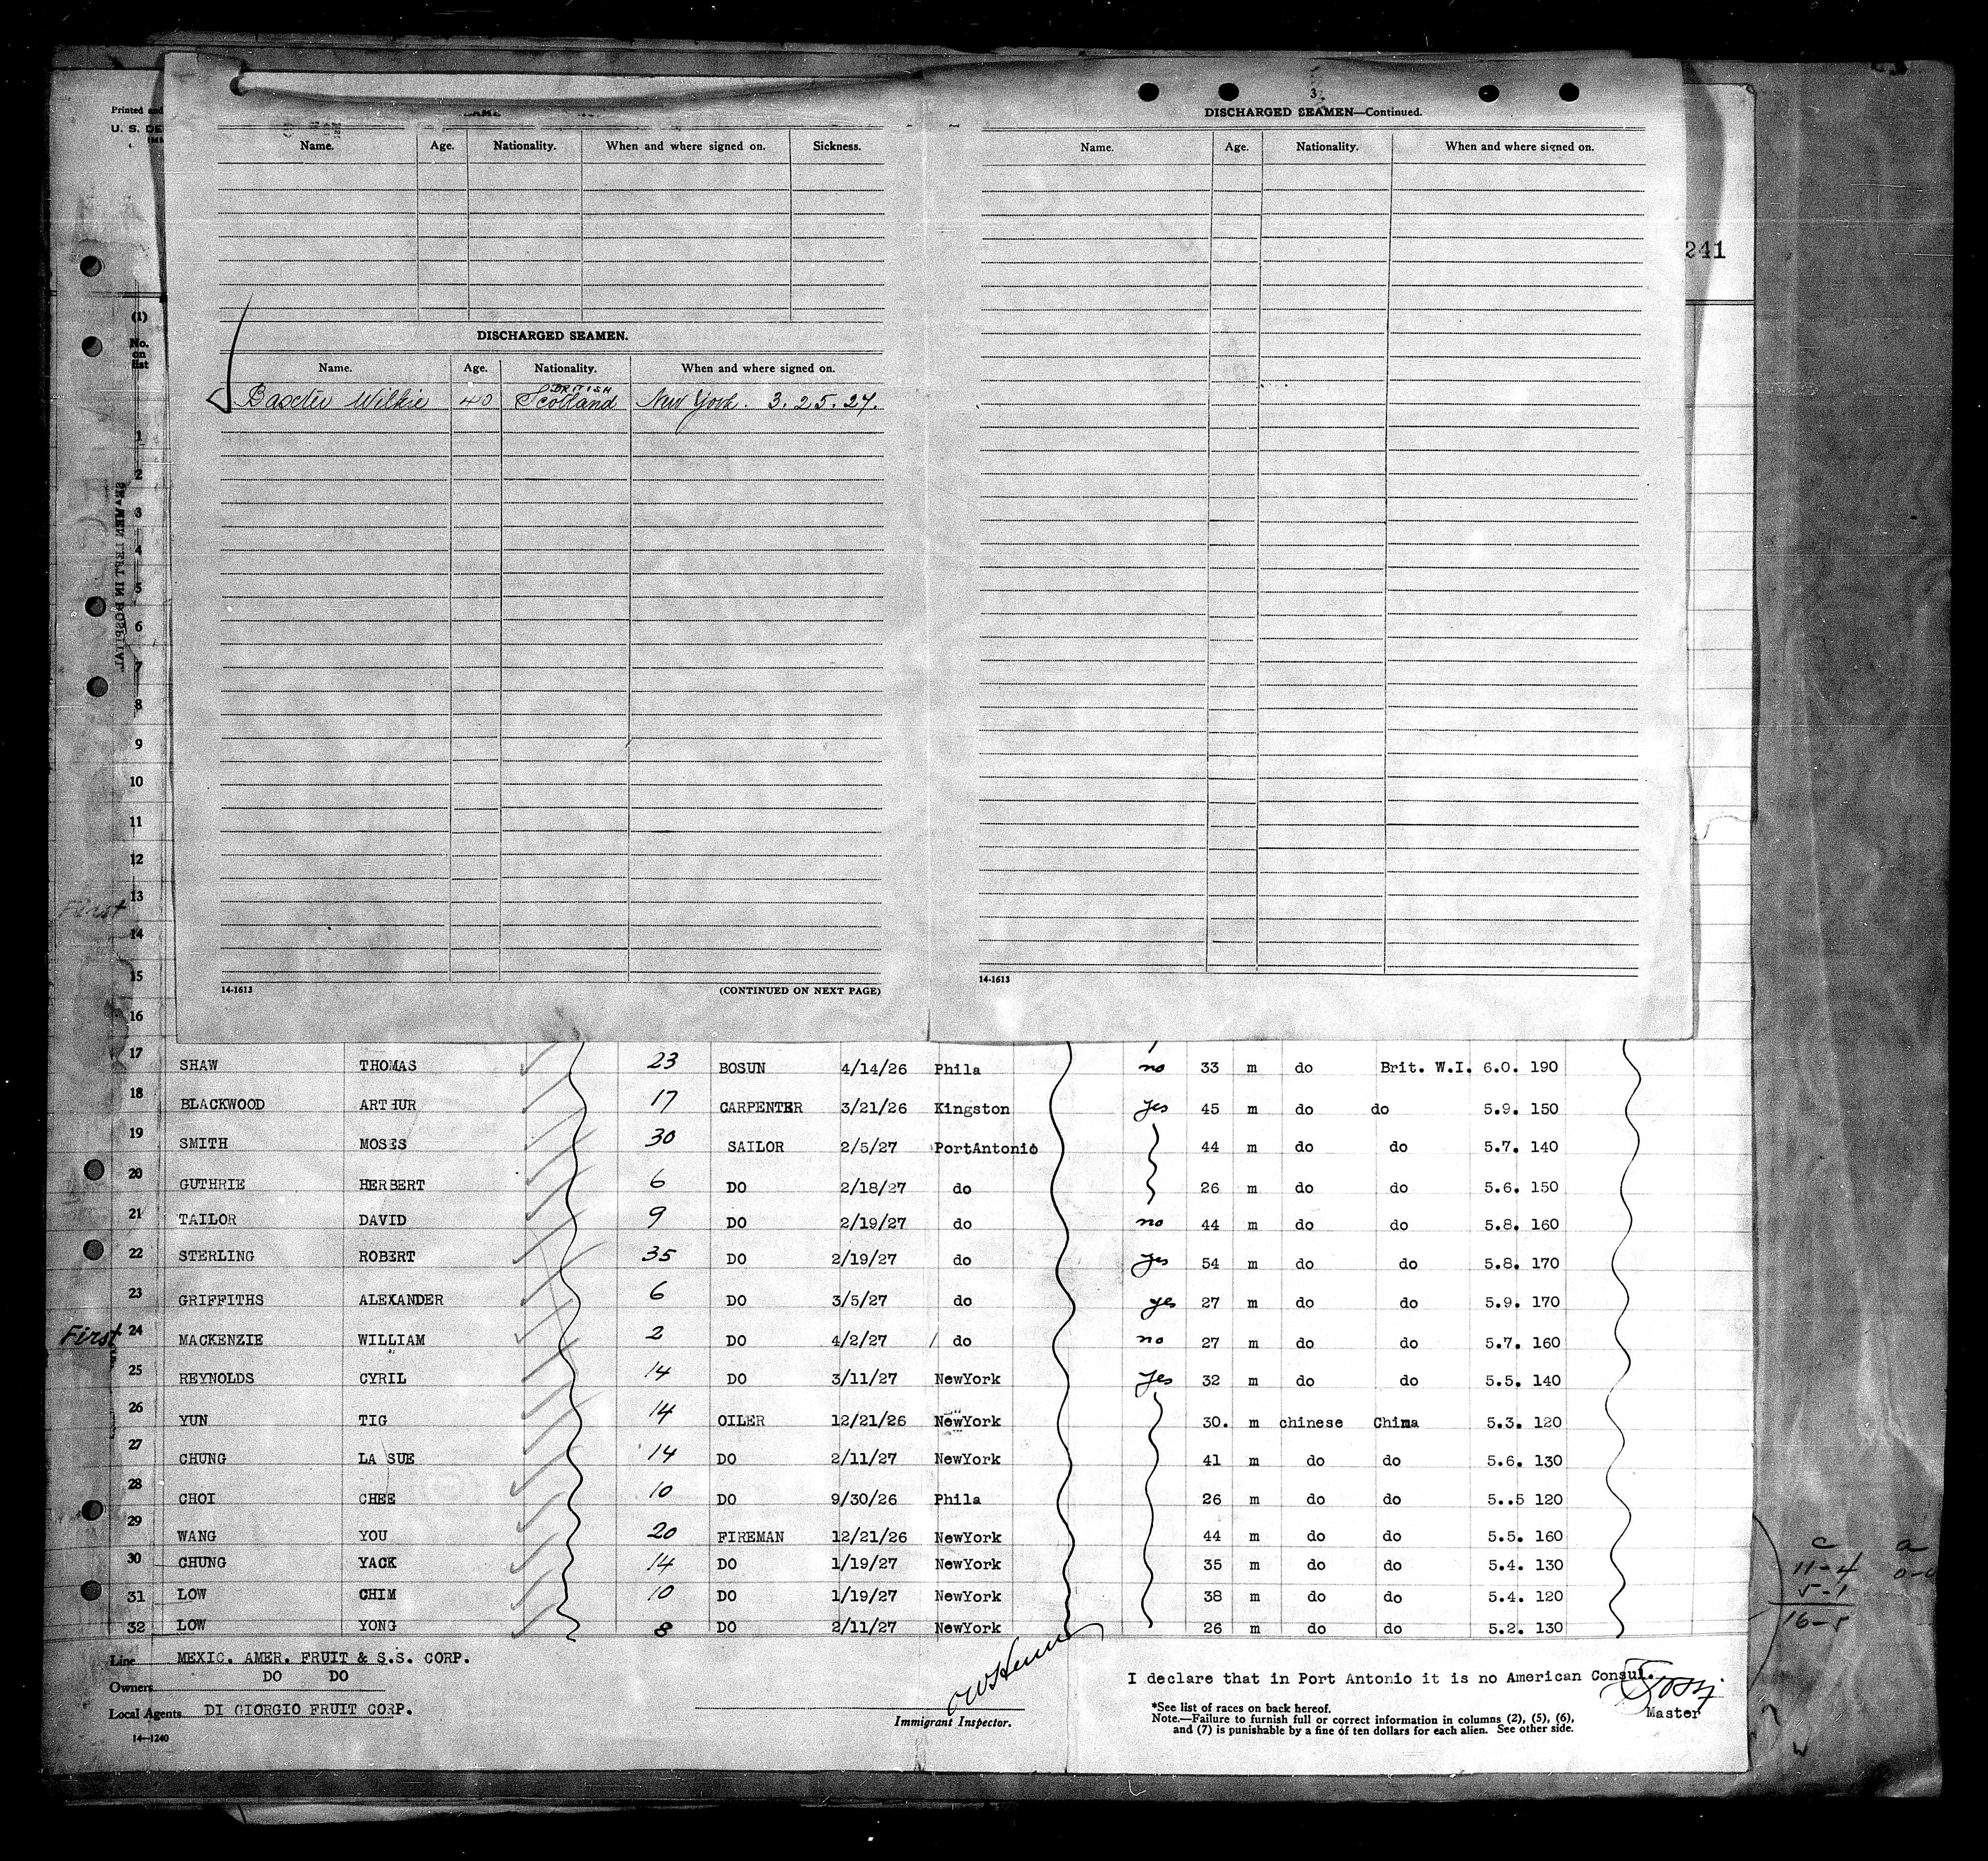 Printed and
U. S. DE
241
(1)
No.
on
list
Name. Age. Nationality. When and where signed on. Sickness.
DISCHARGED SEAMEN.
Name. Age. Nationality. When and where signed on.
BRITISH
Baxter Wilkie 40 Scotland New York. 3. 25. 27.
14-1613 (CONTINUED ON NEXT PAGE)
3
DISCHARGED SEAMEN—Continued.
Name. Age. Nationality. When and where signed on.
14-1613
SEAMEN LEFT IN HOSPITAL
1
2
3
4
5
6
7
8
9
10
11
12
13
First
14
15
16
17 SHAW THOMAS 23 BOSUN 4/14/26 Phila no 33 m do Brit. W.I. 6.0. 190
18 BLACKWOOD ARTHUR 17 CARPENTER 3/21/26 Kingston yes 45 m do do 5.9. 150
19 SMITH MOSES 30 SAILOR 2/5/27 PortAntonio 44 m do do 5.7. 140
20 GUTHRIE HERBERT 6 DO 2/18/27 do 26 m do do 5.6. 150
21 TAILOR DAVID 9 DO 2/19/27 do no 44 m do do 5.8. 160
22 STERLING ROBERT 35 DO 2/19/27 do yes 54 m do do 5.8. 170
23 GRIFFITHS ALEXANDER 6 DO 3/5/27 do yes 27 m do do 5.9. 170
First 24 MACKENZIE WILLIAM 2 DO 4/2/27 / do no 27 m do do 5.7. 160
25 REYNOLDS CYRIL 14 DO 3/11/27 NewYork yes 32 m do do 5.5. 140
26 YUN TIG 14 OILER 12/21/26 NewYork 30. m chinese China 5.3. 120
27 CHUNG LA SUE 14 DO 2/11/27 NewYork 41 m do do 5.6. 130
28 CHOI CHEE 10 DO 9/30/26 Phila 26 m do do 5..5 120
29 WANG YOU 20 FIREMAN 12/21/26 NewYork 44 m do do 5.5. 160
30 CHUNG YACK 14 DO 1/19/27 NewYork 35 m do do 5.4. 130
31 LOW CHIM 10 DO 1/19/27 NewYork 38 m do do 5.4. 120
32 LOW YONG 8 DO 2/11/27 NewYork 26 m do do 5.2. 130
c a
11-4 0-0
5-1
16-5
Line MEXIC. AMER. FRUIT & S.S. CORP.
Owners DO DO
Local Agents DI GIORGIO FRUIT CORP.
14—1240
Immigrant Inspector.
I declare that in Port Antonio it is no American Consul.
*See list of races on back hereof.
Note.—Failure to furnish full or correct information in columns (2), (5), (6),
and (7) is punishable by a fine of ten dollars for each alien. See other side.
Master